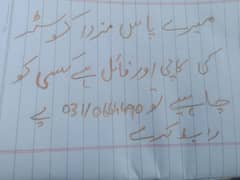 میرے پاس مزدا کوسٹر
کی کاپی اور فائل ہے کسی کو
چاہیے تو 03110664490 پے
رابطہ کرے